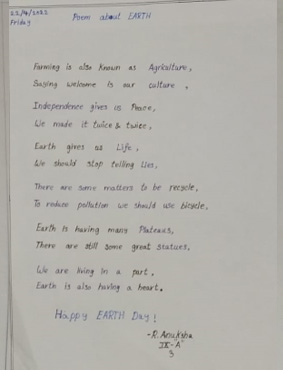 22/4/2022
Friday
Poem about EARTH
Farming is also known as Agriculture,
Saying welcome is our culture,
Independence gives us Peace,
We made it twice & twice,
Earth gives us Life,
We should stop telling lies,
There are some matters to be recycle,
To reduce pollution we should use bicycle,
Earth is having many Plateaus,
There are still some great statues,
We are living in a part,
Earth is also having a heart.
Happy EARTH Day!
-R. Anuksha
IX-'A'
3